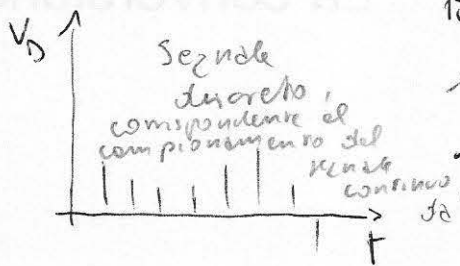 V_D
Segnale
discreto,
corrispondente al
campionamento del
segnale
continuo
da
t